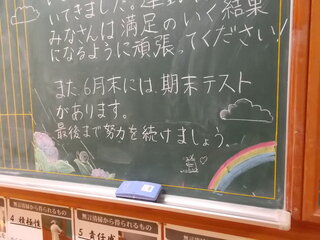 いてきました。
みなさんは満足のいく結果
になるように頑張ってください!
また6月末には、期末テスト
があります。
最後まで努力を続けましょう。
無言清掃から得られるもの
4 積極性
無言清掃から得られるもの
5 責任感
無言清掃から得られるもの